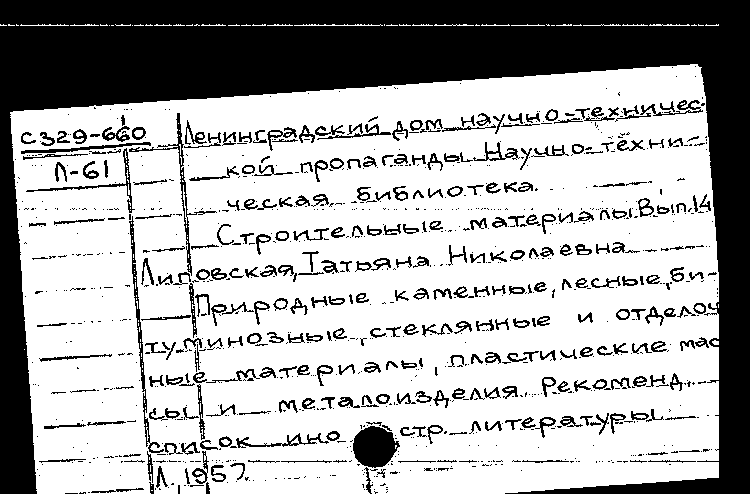 С329-660
Л-61
Ленинградский дом научно-техничес-
кой пропаганды. Научно-техни-
ческая библиотека.
Строительные материалы. Вып. 14
Липовская, Татьяна Николаевна
Природные каменные, лесные, би-
туминозные, стеклянные и отделоч
ные материалы, пластические мас
сы и металоизделия. Рекоменд.
список ино стр. литературы
Л., 1957.